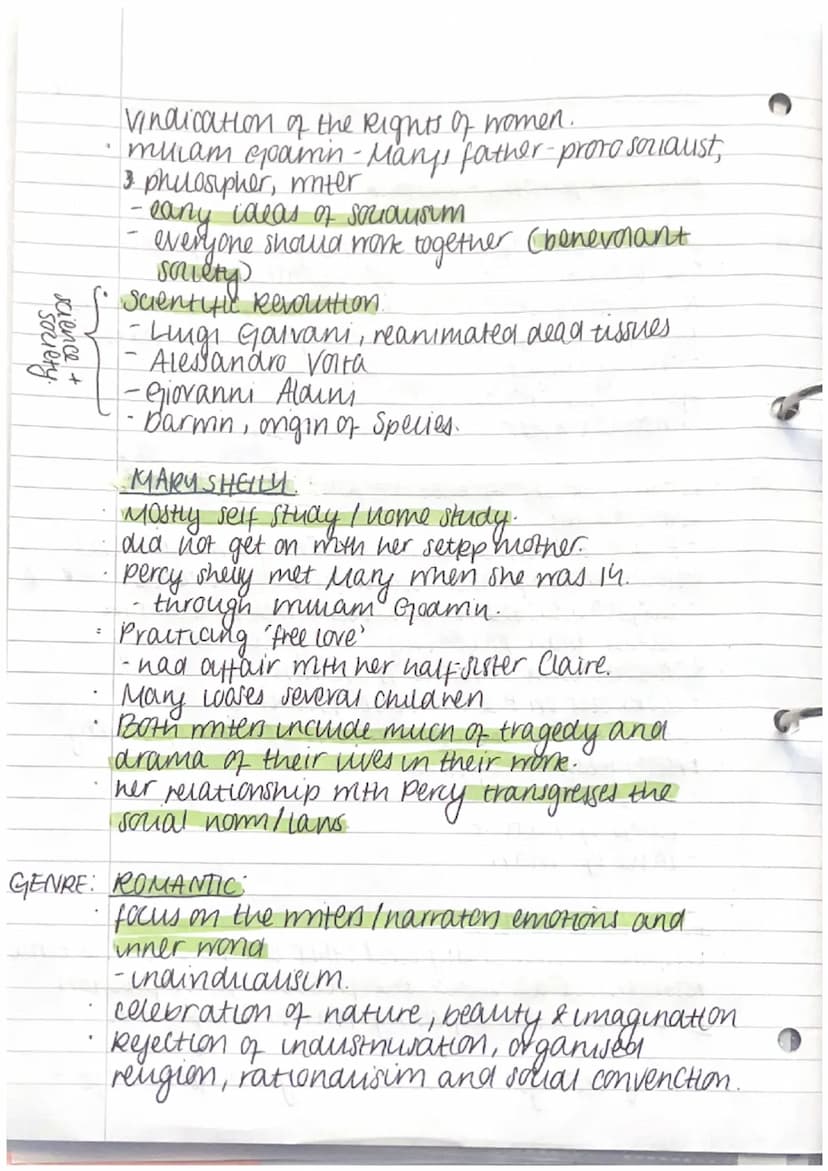 Vindication of the Rights of Women.
· William Godwin - Mary's father - proto socialist,
philosopher, writer
- early ideas of socialism
- everyone should work together (benevolant
society)
science +
society.
· Scientific Revolution
- Luigi Galvani, reanimated dead tissues
- Alessandro Volta
- Giovanni Aldini
- Darwin, origin of Species.
MARY SHELLY.
· Mostly self study / home study.
· did not get on with her setpp mother.
· Percy Shelly met Mary when she was 14.
- through William Godwin.
· Practicing 'free love'
- had affair with her half-sister Claire.
· Mary looses several children
· Both writers include much of tragedy and
drama of their lives in their work.
· her relationship with Percy transgresses the
social norm/laws
GENRE: ROMANTIC:
· focus on the writers/narrators emotions and
inner world
- individualism.
· celebration of nature, beauty & imagination
· Rejection of industrilisation, organised
religion, rationalisim and social convenction.